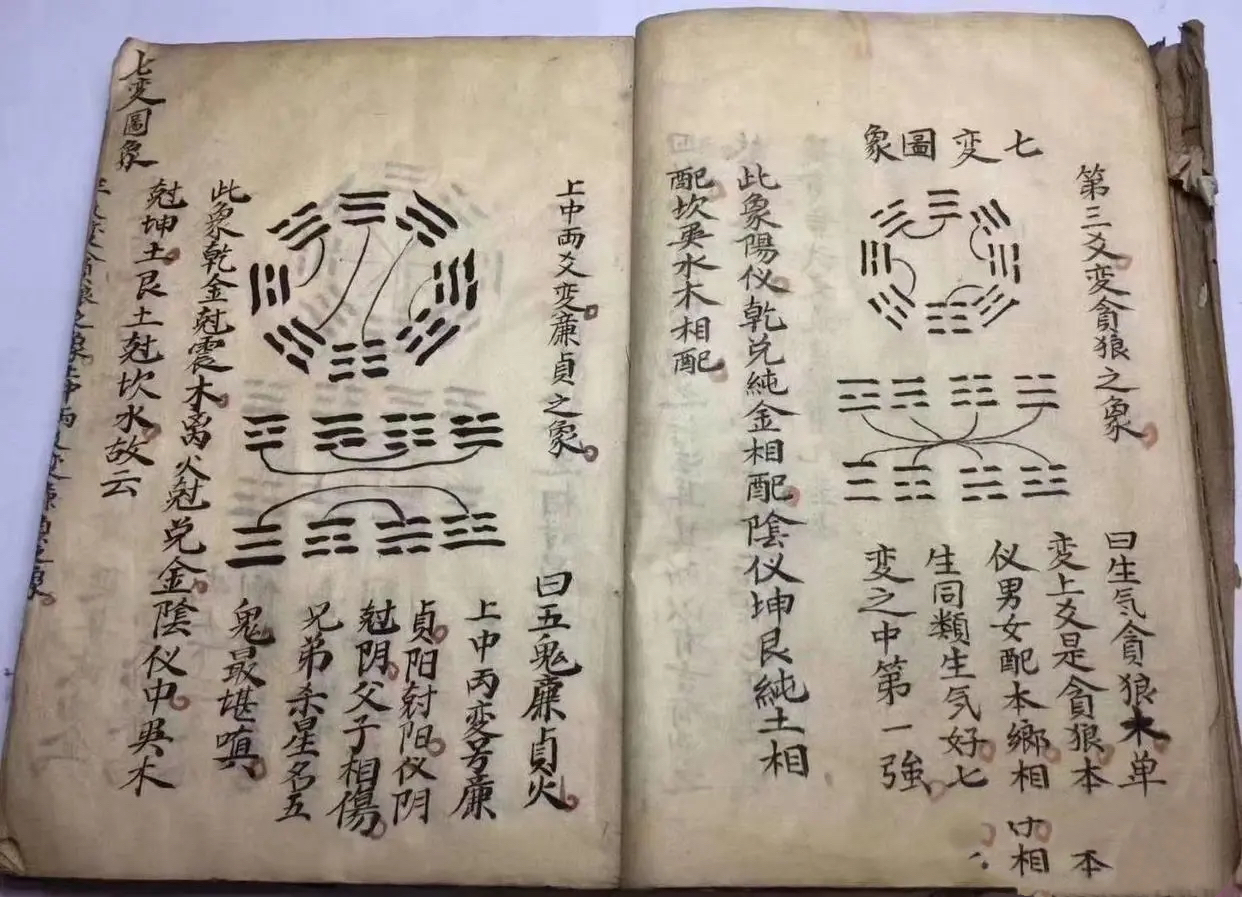 七变圖象
第三爻变貪狼之象
曰生气貪狼木单
变上爻是貪狼本
仪男女配本鄉相
生同類生气好七
变之中第一強
本
相
此象陽仪乾兑純金相配陰仪坤艮純土相
配坎巽水木相配
上中两爻变廉貞之象
曰五鬼廉貞火
上中丙变号廉
貞阳尅阳仪阴
尅阴父子相傷
兄弟杀星名五
鬼最堪嗔
此象乾金尅震木离火尅兑金陰仪中巽木
尅坤土艮土尅坎水故云
七变圖象